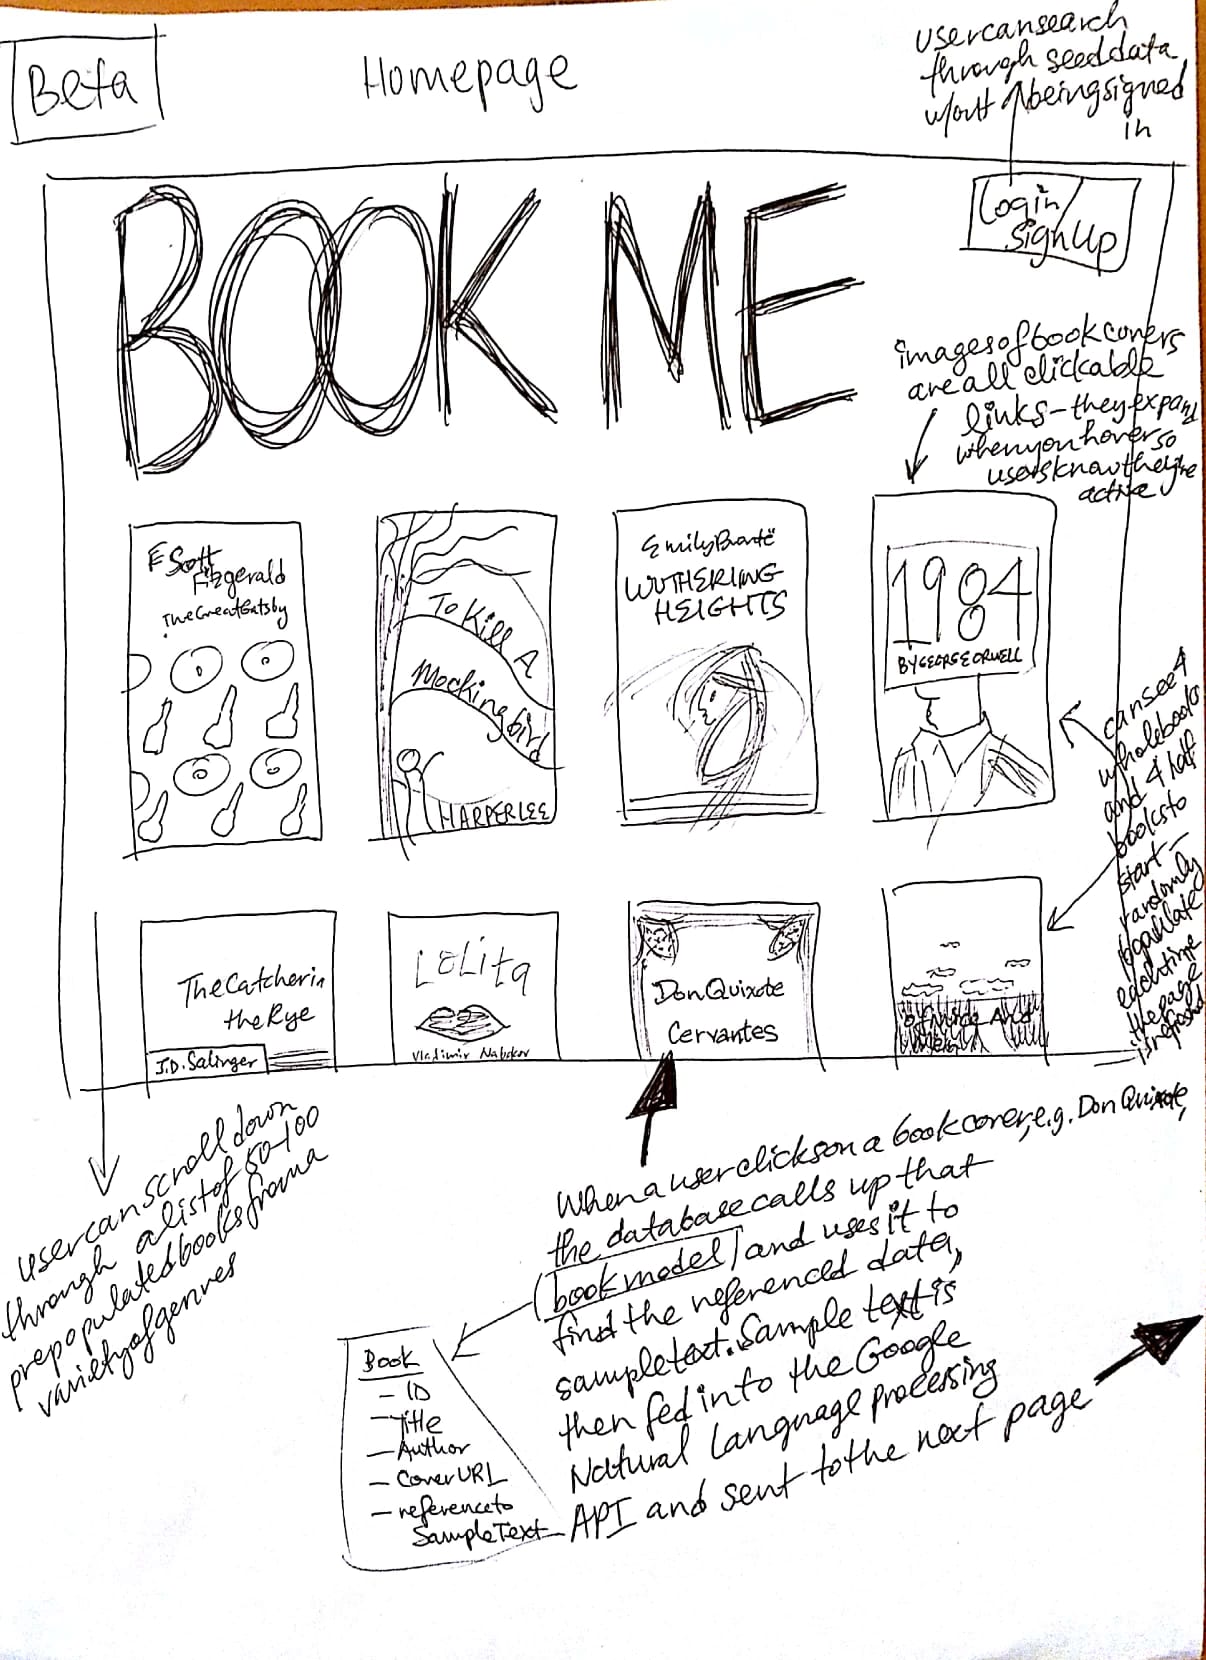 Beta
Homepage
user can search
through seed data
w/out being signed
in
Login/
Sign Up
BOOK ME
images of book covers
are all clickable
links - they expand
when you hover so
users know they're
active
F Scott
Fitzgerald
The Great Gatsby
To Kill A
Mockingbird
HARPER LEE
Emily Brontë
WUTHERING
HEIGHTS
1984
BY GEORGE ORWELL
can see 4
whole books
and 4 half
books to
start -
randomly
populate
each time
the page
is refreshed
The Catcher in
the Rye
J.D. Salinger
Lolita
Vladimir Nabokov
Don Quixote
Cervantes
of Mice And
user can scroll down
through a list of 50-100
prepopulated books from a
variety of genres
When a user clicks on a book cover, e.g. Don Quixote,
the database calls up that
book model and uses it to
find the referenced data,
sample text. Sample text is
then fed into the Google
Natural Language Processing
API and sent to the next page
Book
- ID
- Title
- Author
- Cover URL
- reference to
Sample Text